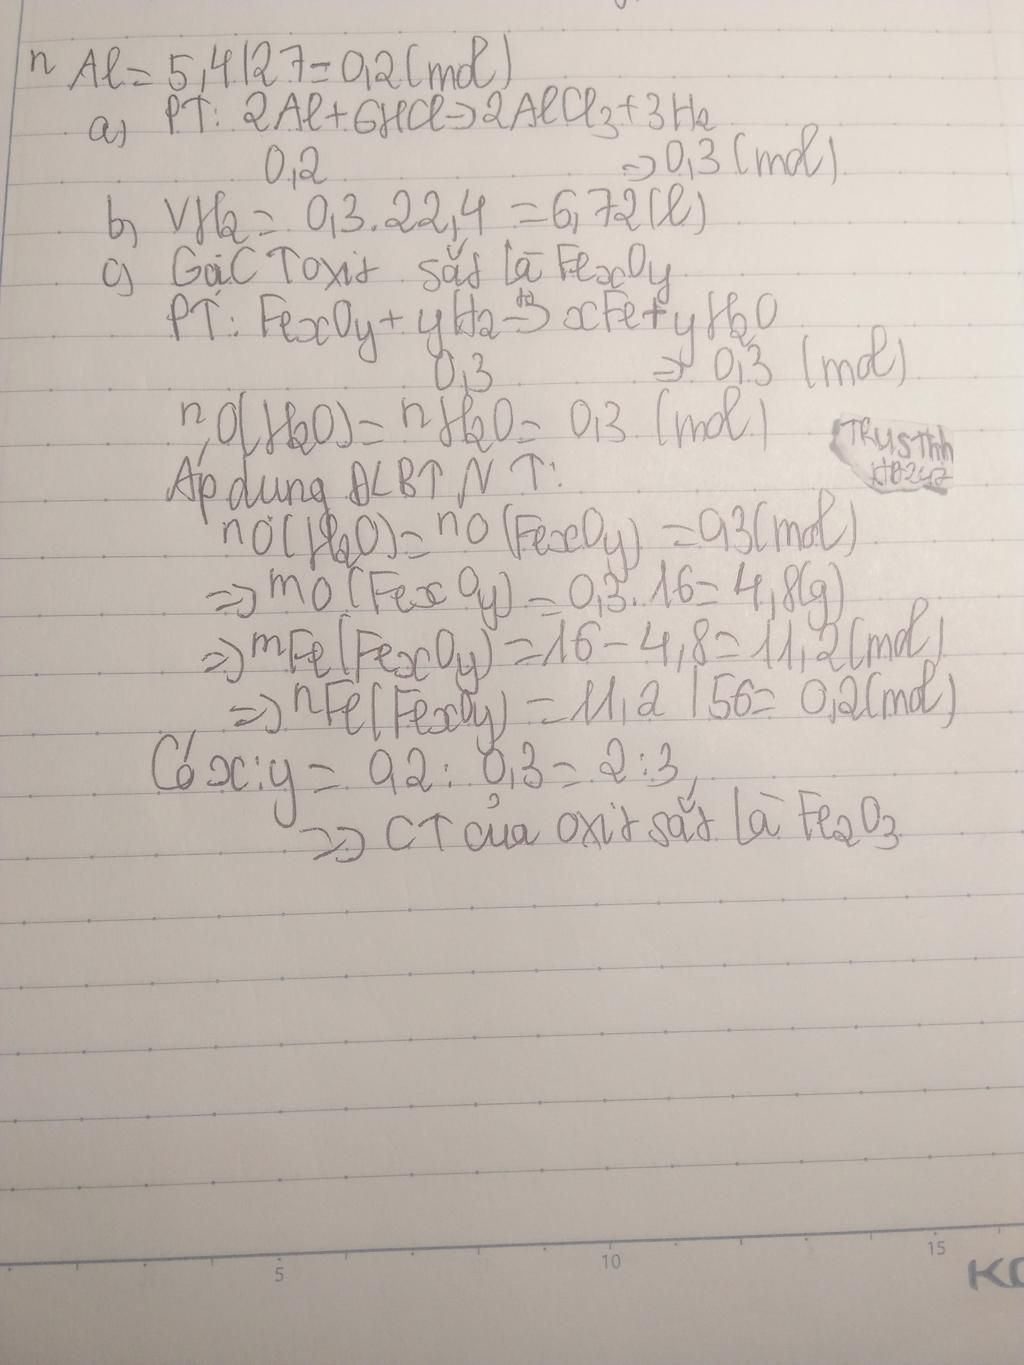 nAl = 5,4/27 = 0,2 (mol)
a) PT: 2Al + 6HCl → 2AlCl3 + 3H2
0,2 → 0,3 (mol)
b) VH2 = 0,3.22,4 = 6,72 (l)
c) Gọi CT oxit sắt là FexOy
PT: FexOy + yH2 → xFe + yH2O
0,3 → 0,3 (mol)
nO(H2O) = nH2O = 0,3 (mol)
TRUSThh
Áp dụng ĐLBTNT:
nO(H2O) = nO(FexOy) = 0,3 (mol)
=> mO(FexOy) = 0,3.16 = 4,8(g)
=> mFe(FexOy) = 16 - 4,8 = 11,2 (mol)
=> nFe(FexOy) = 11,2 / 56 = 0,2 (mol)
Có x:y = 0,2 : 0,3 = 2:3
=> CT của oxit sắt là Fe2O3
5 10 15
KO